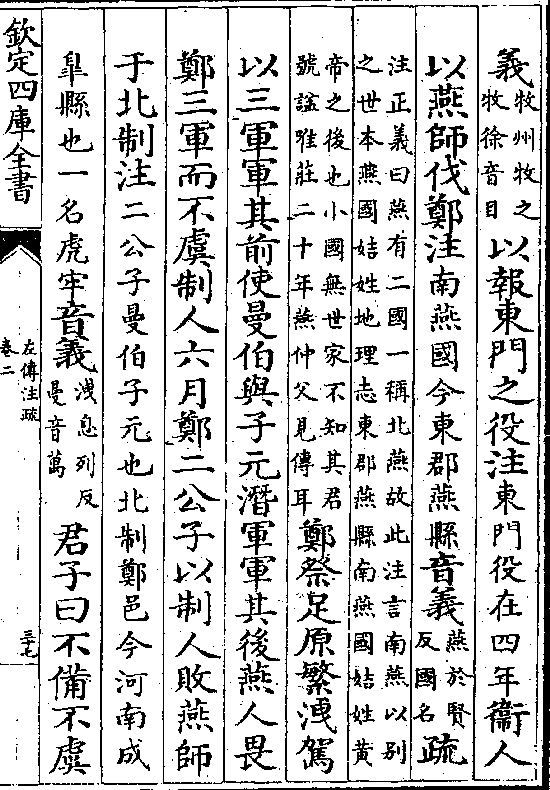 義牧州牧之
牧徐音目
以報東門之役注東門役在四年衞人
以燕師伐鄭注南燕國今東郡燕縣音義燕於賢
反國名
疏
注正義曰燕有二國一稱北燕故此注言南燕以别
之世本燕國姞姓地理志東郡燕縣南燕國姞姓黄
帝之後也小國無世家不知其君
號諡唯莊二十年燕仲父見傳耳
鄭祭足原繁洩駕
以三軍軍其前使曼伯與子元潛軍軍其後燕人畏
鄭三軍而不虞制人六月鄭二公子以制人敗燕師
于北制注二公子曼伯子元也北制鄭邑今河南成
臯縣也一名虎牢音義洩息列反
曼音萬
君子曰不備不虞
欽定四庫全書
左傳注疏
卷二
三七